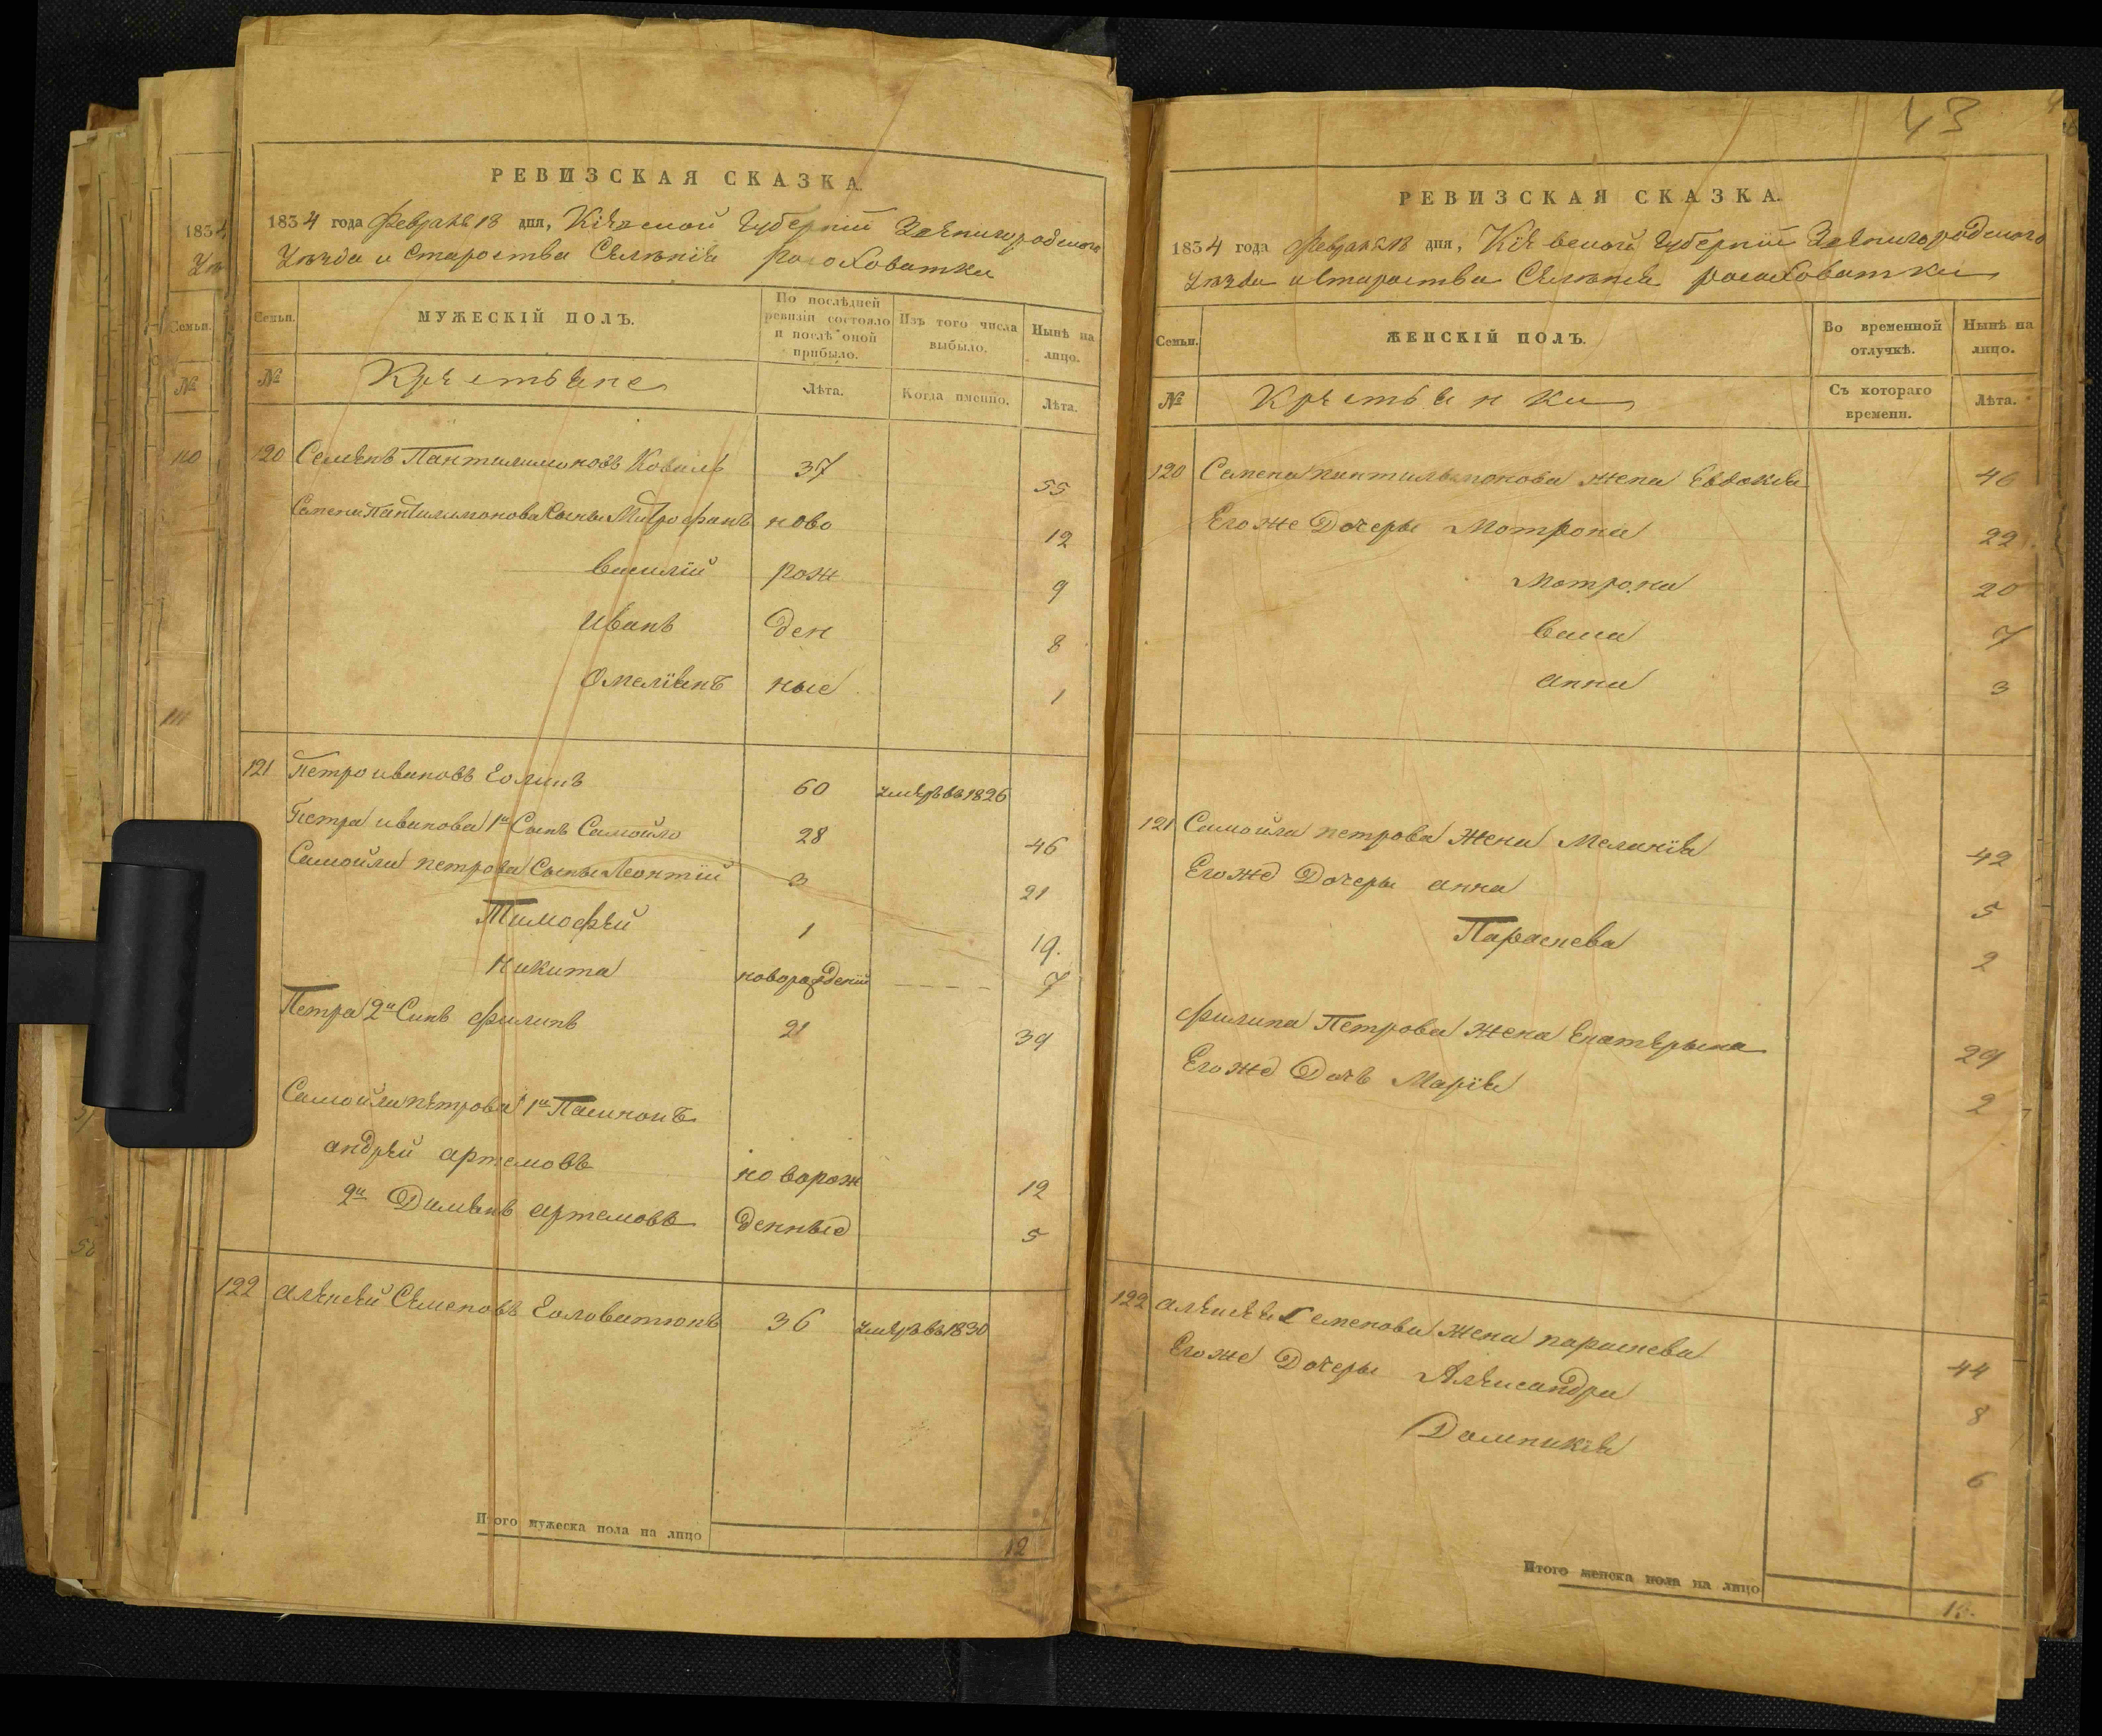 РЕВИЗСКАЯ СКАЗКА.
1834 года Февраля 18 дня, Кіевской Губерніи Звенигородского
Уѣзда и Староства Селѣнія росоховатки
Семьи.
МУЖЕСКІЙ ПОЛЪ.
По послѣдней ревизіи состояло и послѣ оной прибыло.
Изъ того числа выбыло.
Нынѣ на лицо.
№
Крестьяне
Лѣта.
Когда именно.
Лѣта.
120 Семенъ Пантилимоновъ Коваль 37 55
Семена Пантилимонова Сыны Митрофанъ ново 12
василій рож 9
Иванъ ден 8
Омеліянъ ные 1
121 Петро ивановъ 60 умеръ въ 1826
Петра иванова 1й Сынъ Самойло 28 46
Самойла петрова Сыны Леонтій 3 21
Тимофей 1 19.
Никита новорожденій 7
Петра 2й Сынъ филипъ 21 39
Самойла петрова 1й Пасинокъ
андрей артемовъ новорож 12
2й Дамянъ артемовъ денные 5
122 алексей Семеновъ 36 умеръ въ 1830
Итого мужеска пола на лицо 12
43
РЕВИЗСКАЯ СКАЗКА.
1834 года Февраля 18 дня, Кіевской Губерніи Звенигородского
Уѣзда и Староства Селѣнія росоховатки
Семьи.
ЖЕНСКІЙ ПОЛЪ.
Во временной отлучкѣ.
Нынѣ на лицо.
№
Крестьянки
Съ котораго времени.
Лѣта.
120 Семена пантилимонова жена Евдокія 46
Егоже Дочеры Мотрона 22
Мотрона 20
7
анна 3
121 Самойла петрова Жена Меланія 42
Егоже Дочеры анна 5
Параскева 2
филипа Петрова жена Екатерына 29
Егоже Дочь Марія 2
122 алексея Семенова жена параскева 44
Егоже Дочеры Александра 8
Домникія 6
Итого женска пола на лицо
110
111